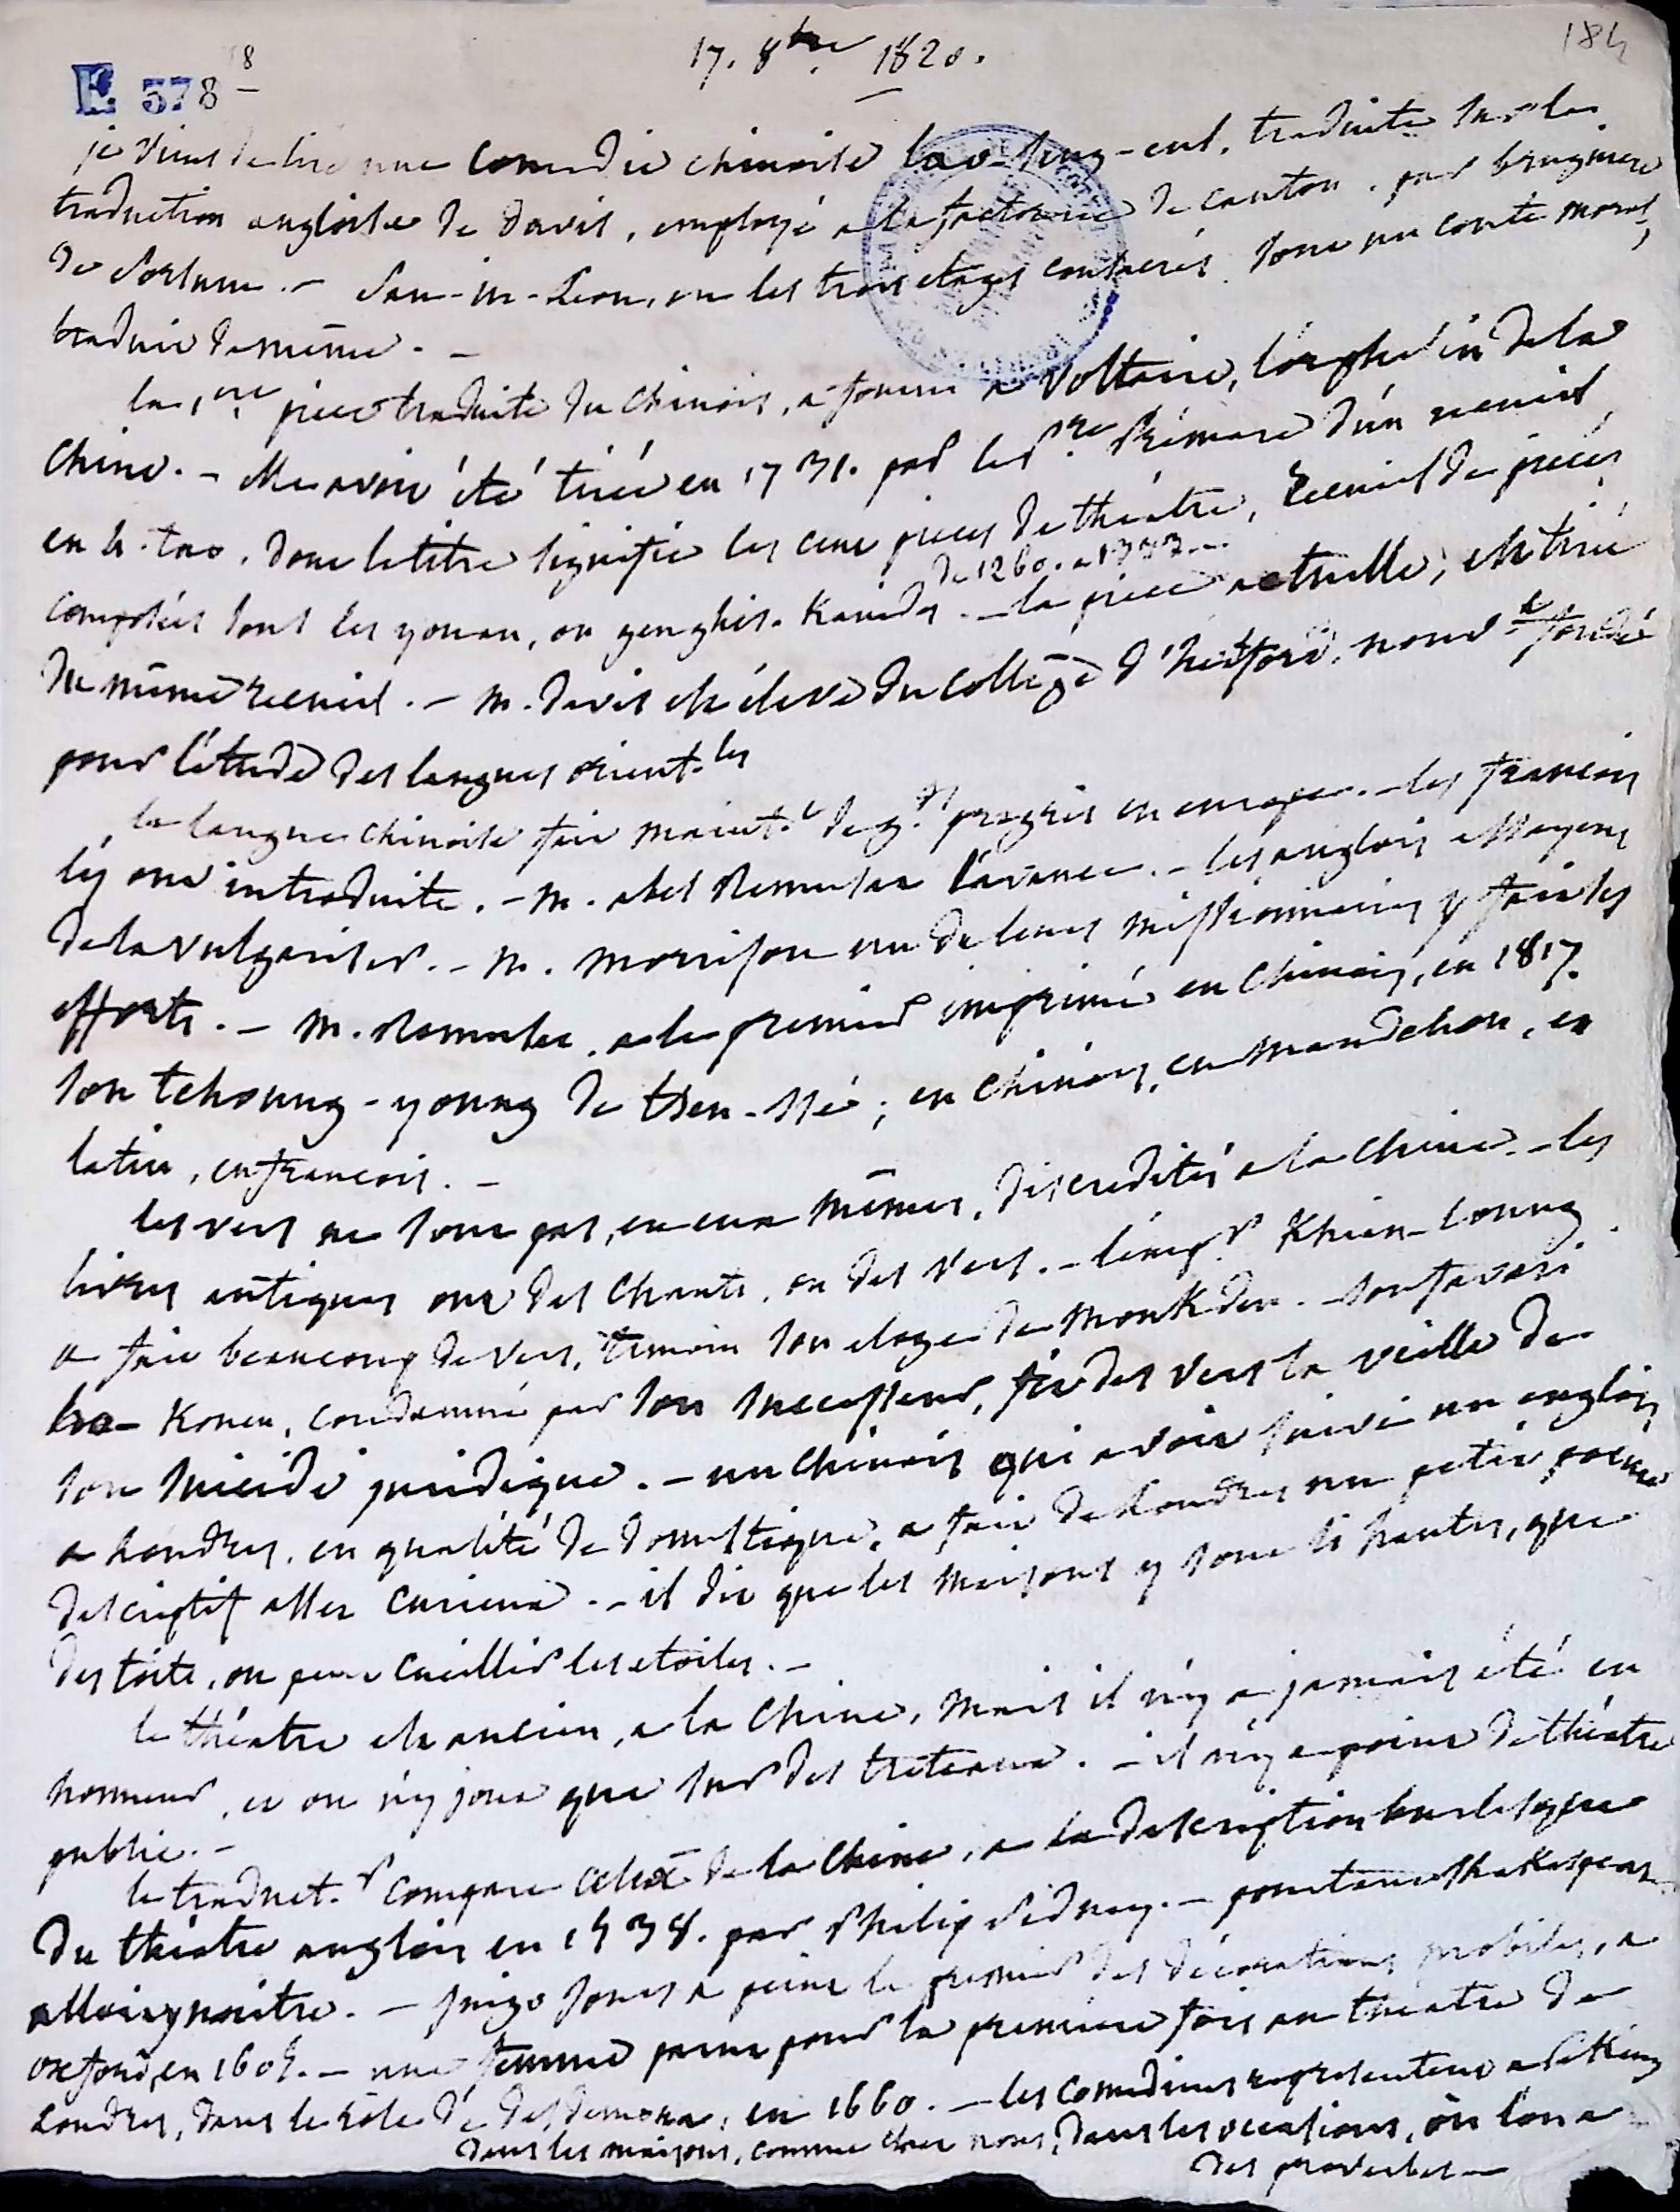 184
17. 8bre. 1820.
E 578 18
je viens de lire une comedie chinoise lao-seng-eul. traduite sur la
traduction angloise de davis, employé a la factorerie de canton. par bruguiere
de sorsum. - San-iu-Leou, ou les trois etages consacrés sont un conte moral,
traduit de même. -
la 1ere piece traduite du chinois, a fourni a Voltaire, l'orphelin de la
chine. - elle avoit été tirée en 1731. par le P. Prémare d'un recueil
en h. tao. dont le titre signifie les cent pieces de théatre, recueil de pieces
de 1260. a 1333. -
composées sous les youan, ou genghis. Kanides. - la piece actuelle, est tirée
du même recueil. - M. davis est élève du collège d'hertford, nouv.t fondé
pour l'étude des langues orient.les
la langue chinoise fait maint.t de g.ds progrès en europe. - les francois
l'y ont introduite. - M. abel Remusat l'avance. - les anglois essayent
de la vulgariser. - M. morrison un de leurs missionnaires y fait ses
efforts. - M. Remusat. a le premier imprimé en chinois, en 1817.
son tchoung-young de tsen-ssé; en chinois, en mandchou, en
latin, en francois. -
les vers ne sont pas, en eux mêmes, discredités a la chine. - les
livres antiques ont des chants, ou des vers. - l'emp.r Khian-Loung
a fait beaucoup de vers, temoin son eloge de moukden. - son favori
ho-Konen, condamné par son successeur, fit des vers la veille de
son suicide juridique. - un chinois qui avoit suivi un anglois
a Londres, en qualité de domestique, a fait de Londres un petit poeme
descriptif assez curieux. - il dit que les maisons y sont si hautes, que
des toits, on peut cueillir les etoiles. -
le théatre est ancien, a la chine, mais il n'y a jamais été en
honneur, et on n'y joue que sur des treteaux. - il n'y a point de théatre
public. -
le traduct.r compare celui de la chine, a la description burlesque
du théatre anglois en 1538. par Philip Sidney. - pourtant Shakespear
alloit y naitre. - Inigo Jones a peint le premier des décorations mobiles, a
oxford, en 1605. - une femme parut pour la premiere fois au theatre de
Londres, dans le rôle de desdemona, en 1660. - les comediens representent a Peking
dans les maisons, comme chez nous, dans les occasions, où l'on a
des proverbes -